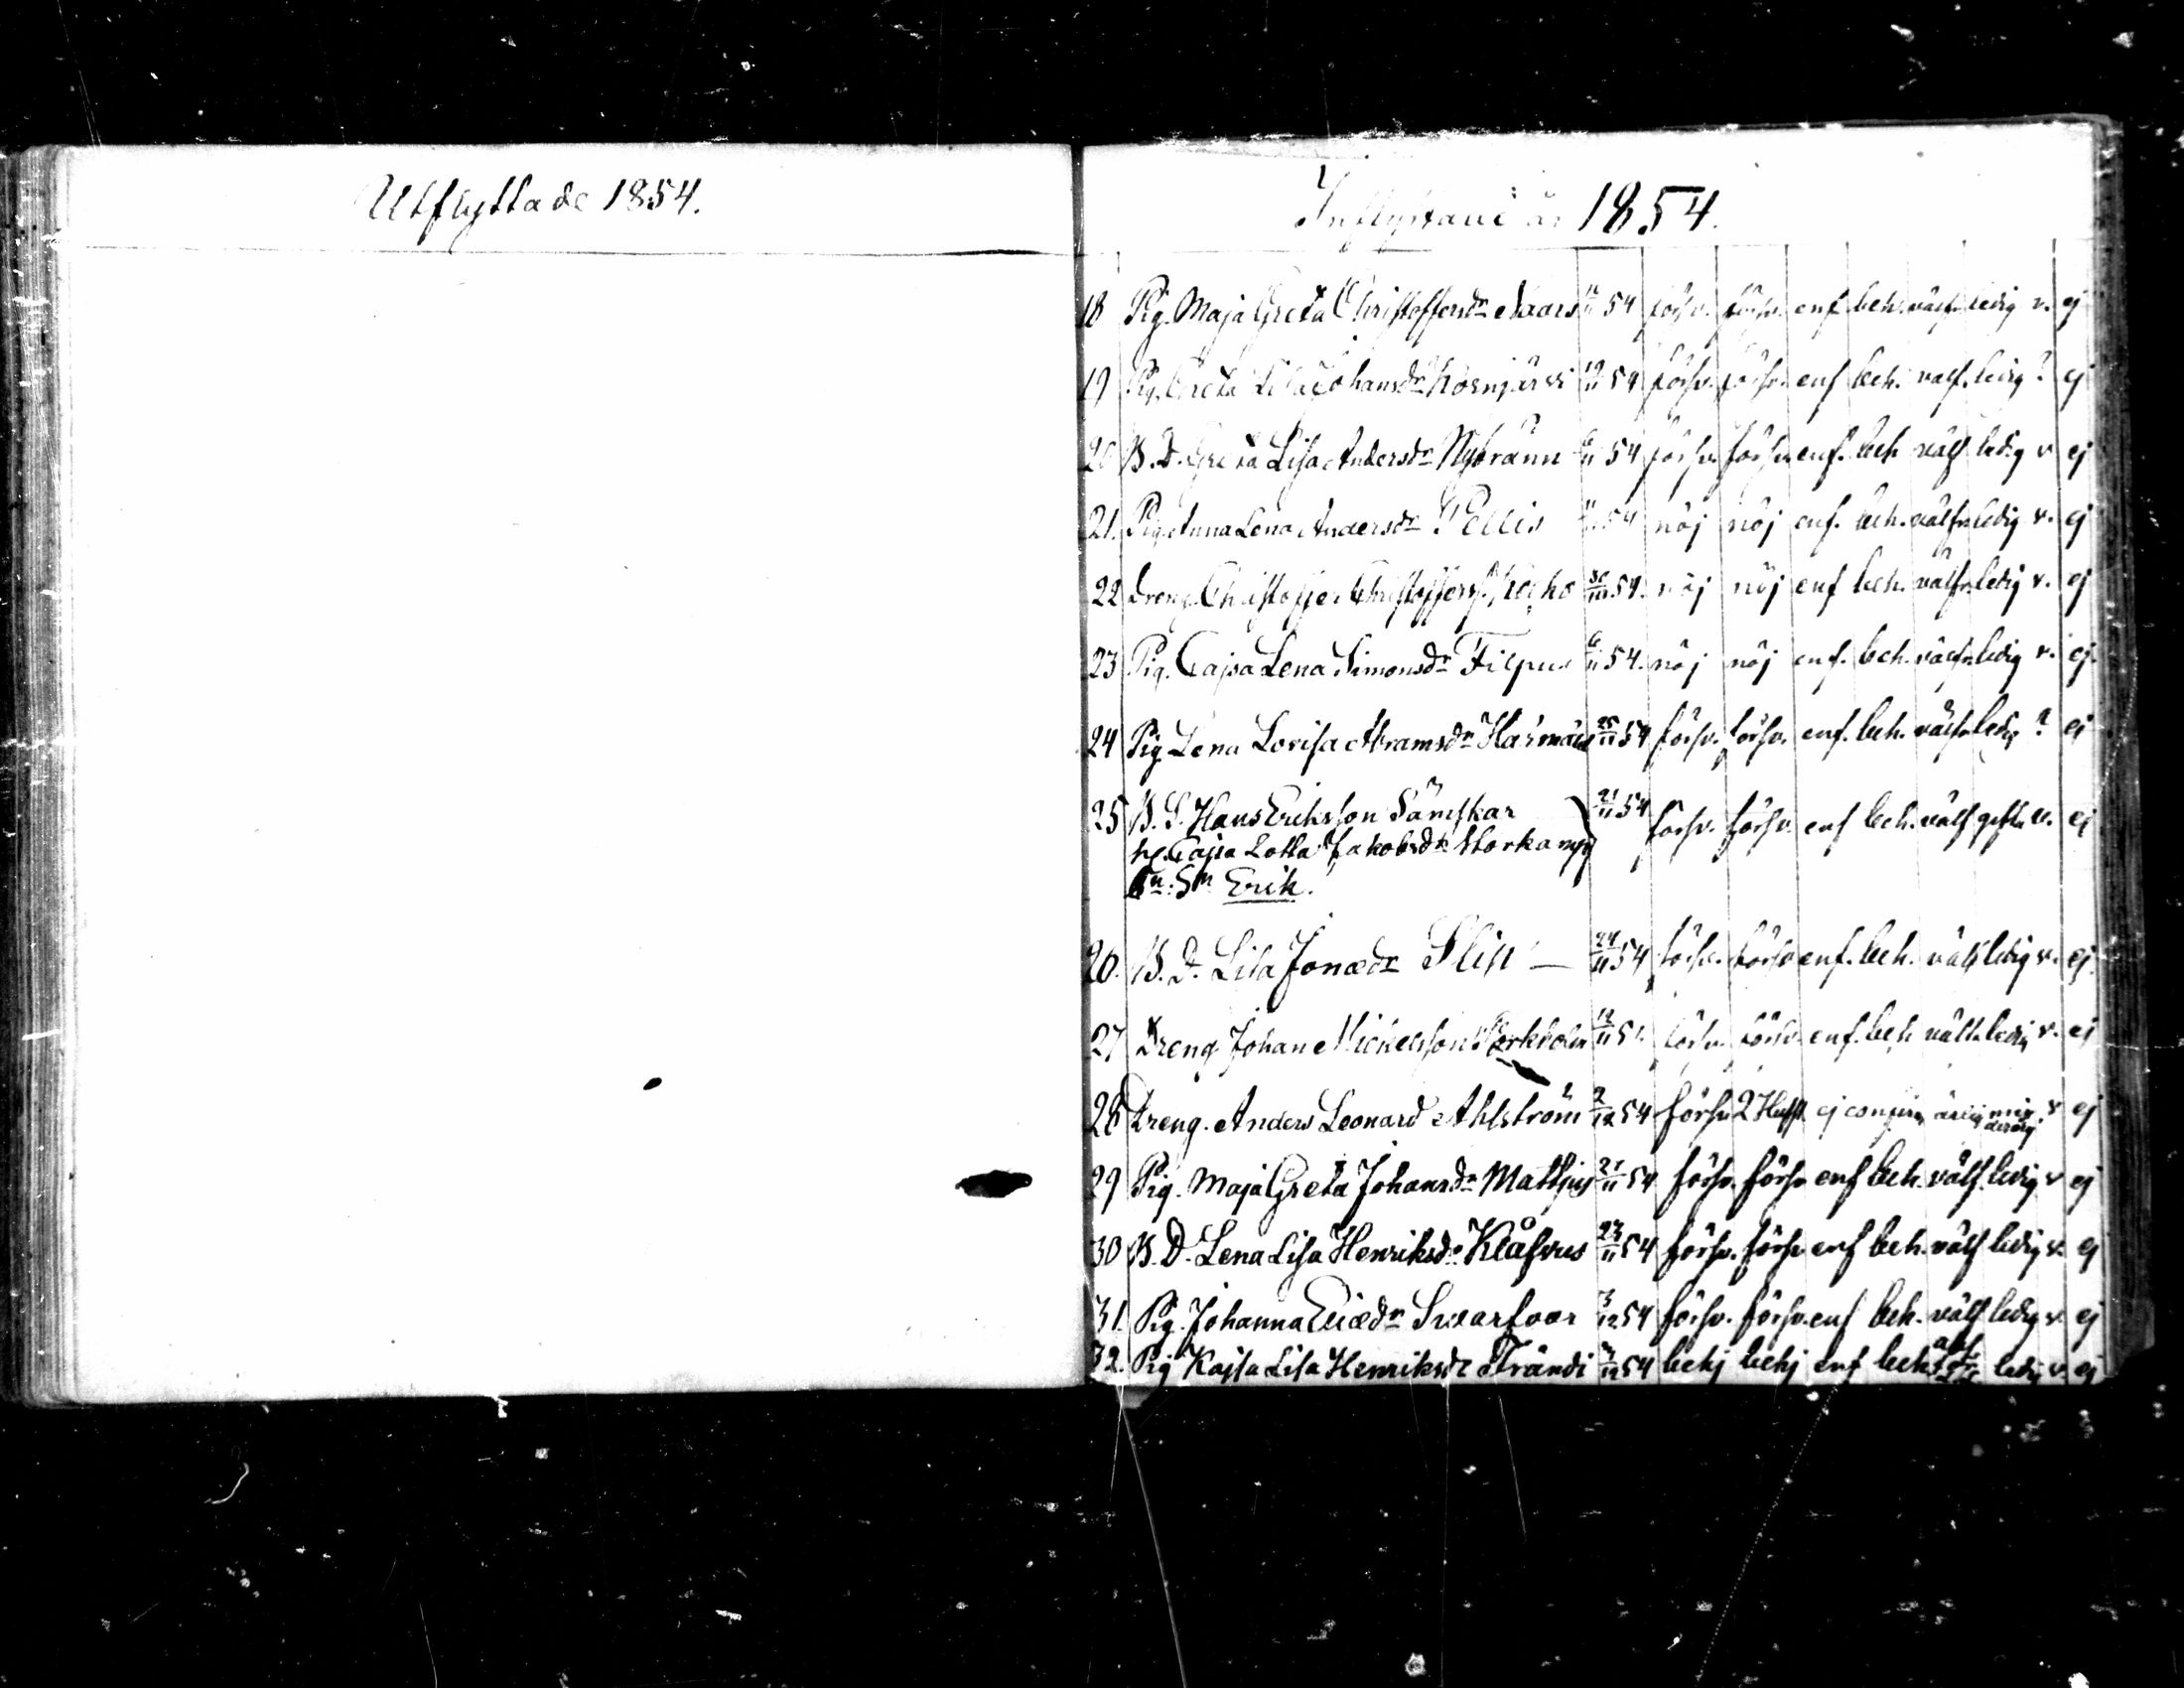 Utflyttade 1854.
Inflyttade år 1854.
18 Pig. Maja Greta Christoffersdr 54 försv. försv. enf. beh. välfr. ledig v. ej
19 Pig. Greta Lisa Johansdr 19/11 54 försv. försv. enf beh. välfr. ledig ? ej
20 B. D. Greta Lisa Andersdr Nybränn 54 försv. försv. enf. beh välf ledig v ej
21. Pig. Anna Lena Andersdr Pellis 54 nöj nöj enf. beh. välfr. ledig v. ej
22 Dreng. Christoffer Christoffersf. 54. nöj nöj enf beh. välfr. ledig v. ej
23 Pig. Cajsa Lena Simonsdr Filpus 6/11 54. nöj nöj enf. beh. välfr. ledig v. ej.
24 Pig. Lena Lovisa Abramsdr 25/11 54 försv. försv. enf. beh. välfr. ledig ? ej
25 B. S. Hans Eriksson Sämskar 21/11 54 försv. försv. enf beh. välf gift v. ej
Cajsa Lotta Jakobsdr Storkamp
Sn Erik.
26. B. D. Lisa Jonædr Slip 24/11 54 försv. försv enf. beh. välf ledig v. ej.
27 Dreng Johan Mickelsson 12/11 försv. försv. enf. beh välf. ledig v. ej
28 Dreng. Anders Leonard Ahlström 2/12 54 försv 2 Hufst. ej v ej
29 Pig. Maja Greta Johansdr Mattjus 21/11 54 försv. försv enf beh. välf. ledig v ej
30 B. D. Lena Lisa Henriksdr Klåfvus 23/11 54 försv. försv enf beh. välf ledig v. ej
31. Pig. Johanna Eliædr Svartvar 3/12 54 försv. försv. enf beh. välf ledig v. ej
32. Pig Kajsa Lisa Henriksdr Frändi 54 behj behj enf beh. ledig v. ej